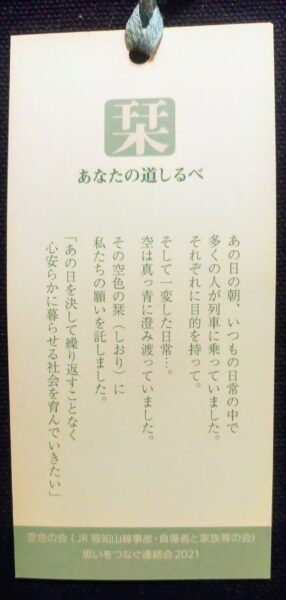 栞
あなたの道しるべ
あの日の朝、いつもの日常の中で
多くの人が列車に乗っていました。
それぞれに目的を持って。
そして一変した日常…。
空は真っ青に澄み渡っていました。
その空色の栞（しおり）に
私たちの願いを託しました。
「あの日を決して繰り返すことなく
心安らかに暮らせる社会を育んでいきたい」
空色の会（JR福知山線事故・負傷者と家族等の会）
思いをつなぐ連絡会 2021